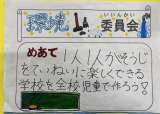 環境委員会
いいんかい
めあて 1人1人がそうじ
をていねいに楽しくできる
学校を全校児童で作ろう